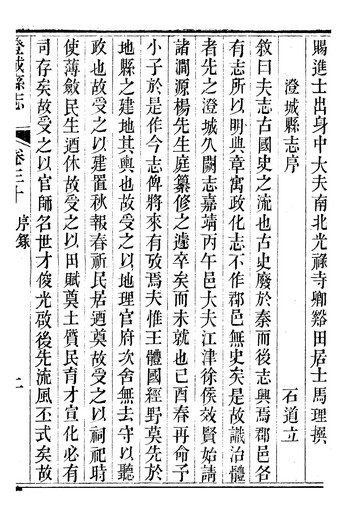 賜進士出身中大夫南北光祿寺卿谿田居士馬理撰
澄城縣志序　石道立
敘曰夫志古國史之流也古史廢於秦而後志興焉郡邑各
有志所以明典章寓政化志不作郡邑無史矣是故識治體
者先之澄城久闕志嘉靖丙午邑大夫江津徐侯效賢始請
諸澗源楊先生庭纂修之遽卒矣而未就也己酉春再命予
小子於是作今志俾將來有攷焉夫惟王體國經野莫先於
地縣之建地其輿也故受之以地理官府次舍無去守以聽
政也故受之以建置秋報春祈民居迺奠故受之以祠祀時
使薄斂民生迺休故受之以田賦奠土質民育才宣化必有
司存矣故受之以官師名世才俊光啟後先流風丕式矣故
澄城縣志　卷三十　序錄　二